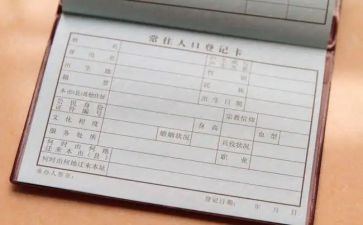 常住人口登记卡
姓名
曾用名 性别
出生地 民族
籍贯 出生日期
本市(县)其他住址 宗教信仰
公民身份证件编号 身高 血型
文化程度 婚姻状况 兵役状况
服务处所 职业
何时由何地迁来本市(县)
何时由何地迁来本址
承办人签章: 登记日期: 年 月 日